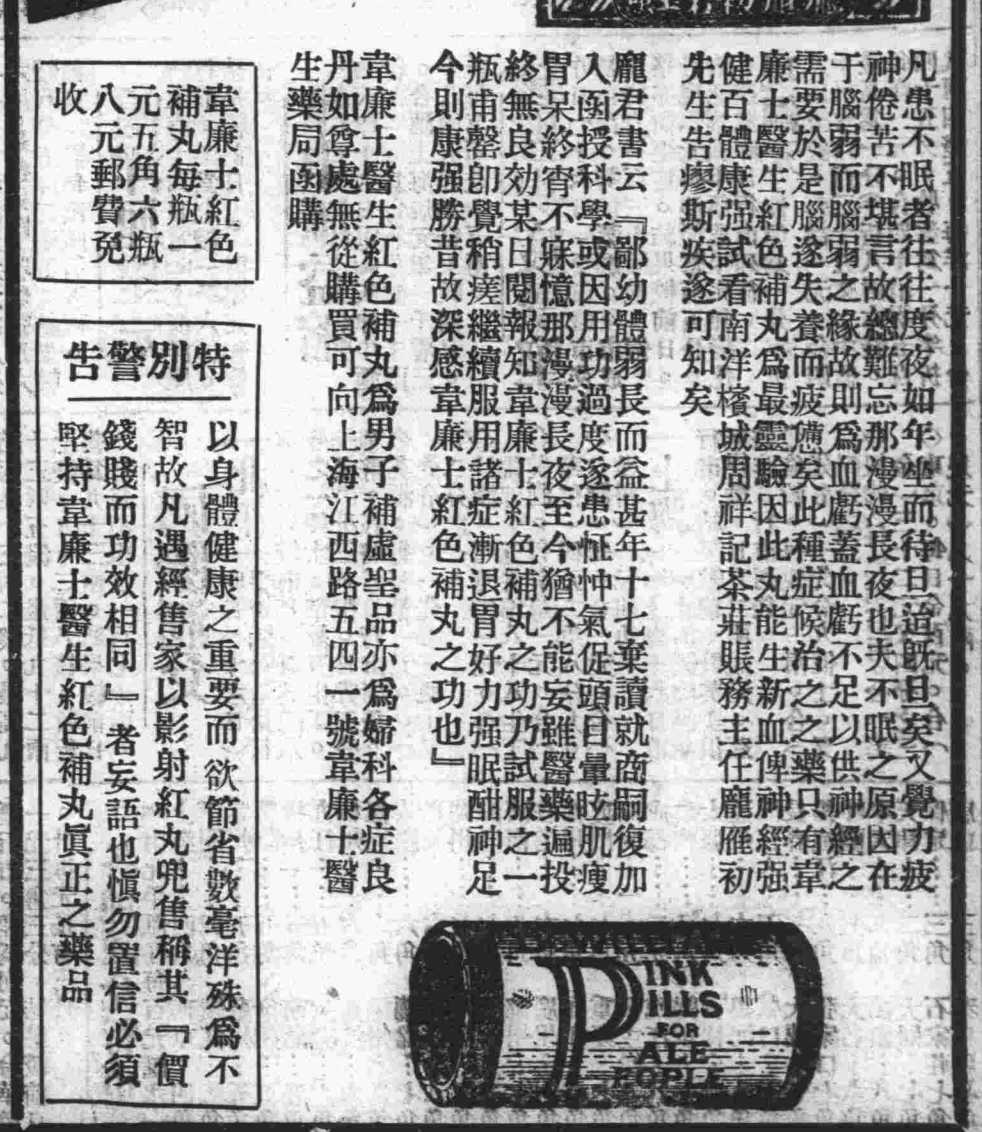 凡患不眠者往往度夜如年坐而待旦迨既旦矣又覺力疲
神倦苦不堪言故總難忘那漫漫長夜也夫不眠之原因在
于腦弱而腦弱之緣故則爲血虧蓋血虧不足以供神經之
需要於是腦遂失養而疲憊矣此種症候治之之藥只有韋
廉士醫生紅色補丸爲最靈驗因此丸能生新血俾神經强
健百體康强試看南洋檳城周祥記茶莊賬務主任龐雁初
先生告瘳斯疾遂可知矣
龐君書云『鄙幼體弱長而益甚年十七棄讀就商嗣復加
入函授科學或因用功過度遂患怔忡氣促頭目暈眩肌瘦
胃呆終宵不寐憶那漫漫長夜至今猶不能妄雖醫藥遍投
終無良効某日閱報知韋廉士紅色補丸之功乃試服之一
瓶甫罄卽覺稍瘥繼續服用諸症漸退胃好力强眠酣神足
今則康强勝昔故深感韋廉士紅色補丸之功也』
韋廉士醫生紅色補丸爲男子補虛聖品亦爲婦科各症良
丹如尊處無從購買可向上海江西路五四一號韋廉士醫
生藥局函購
韋廉士紅色
補丸每瓶一
元五角六瓶
八元郵費免
收
特別警告
以身體健康之重要而欲節省數毫洋殊爲不
智故凡遇經售家以影射紅丸兜售稱其『價
錢賤而功效相同』者妄語也愼勿置信必須
堅持韋廉士醫生紅色補丸眞正之藥品
PINK
PILLS
FOR
PALE
PEOPLE